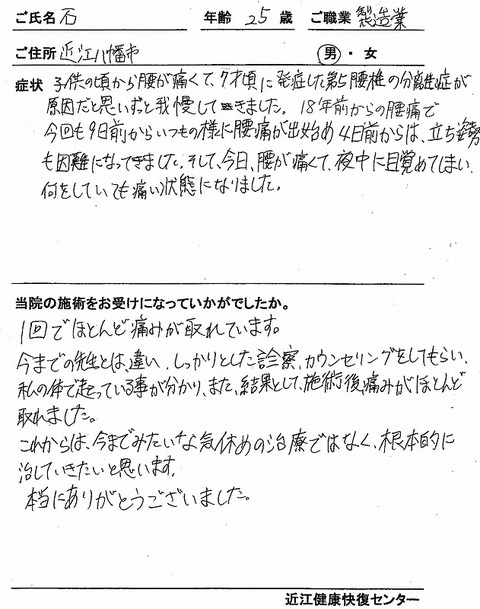 ご氏名 石 年齢 25 歳 ご職業 製造業
ご住所 近江八幡市 男・女
症状 子供の頃から腰が痛くて、7才頃に発症した第5腰椎の分離症が
原因だと思いずっと我慢してきました。18年前からの腰痛で
今回も9日前からいつもの様に腰痛が出始め4日前からは、立ち姿勢
も困難になってきました。そして、今日、腰が痛くて、夜中に目覚めてしまい、
何をしていても痛い状態になりました。
当院の施術をお受けになっていかがでしたか。
1回でほとんど痛みが取れています。
今までの先生とは、違い、しっかりとした診察、カウンセリングをしてもらい、
私の体で起っている事が分かり、また、結果として、施術後、痛みがほとんど
取れました。
これからは、今までみたいな気休めの治療ではなく、根本的に
治していきたいと思います。
本当にありがとうございました。
近江健康快復センター